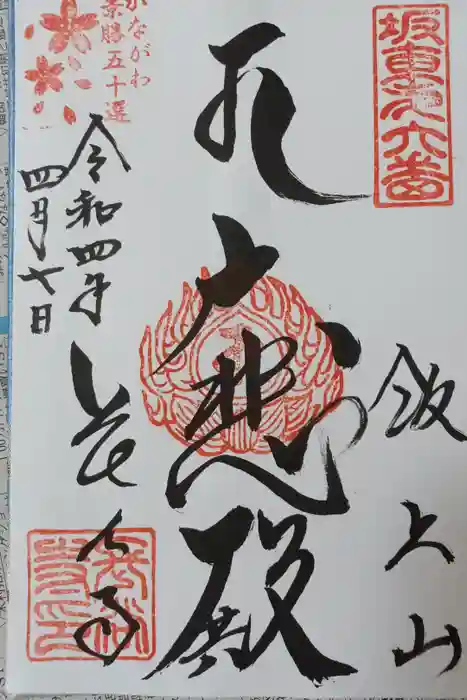 坂東第六番
飯上山
大悲殿
かながわ
景勝五十選
令和四年
四月七日
長谷寺